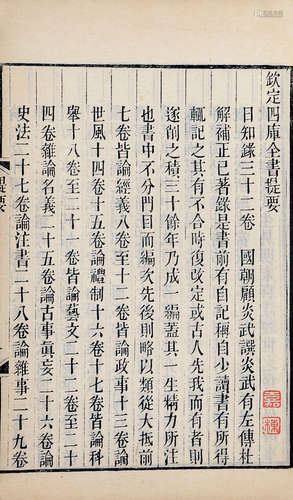 欽定四庫全書提要
日知錄三十二卷　國朝顧炎武譔炎武有左傳杜
解補正已著錄是書前有自記稱自少讀書有所得
輒記之其有不合時復改定或古人先我而有者則
遂削之積三十餘年乃成一編蓋其一生精力所注
也書中不分門目而編次先後則略以類從大抵前
七卷皆論經義八卷至十二卷皆論政事十三卷論
世風十四卷十五卷論禮制十六卷十七卷皆論科
舉十八卷至二十一卷皆論藝文二十二卷至二十
四卷雜論名義二十五卷論古事眞妄二十六卷論
史法二十七卷論注書二十八卷論雜事二十九卷
提要